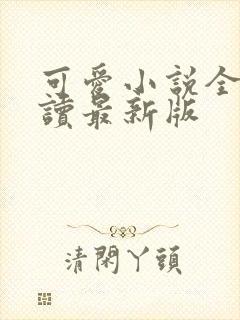 可愛小說全
讀最新版
清閑丫頭